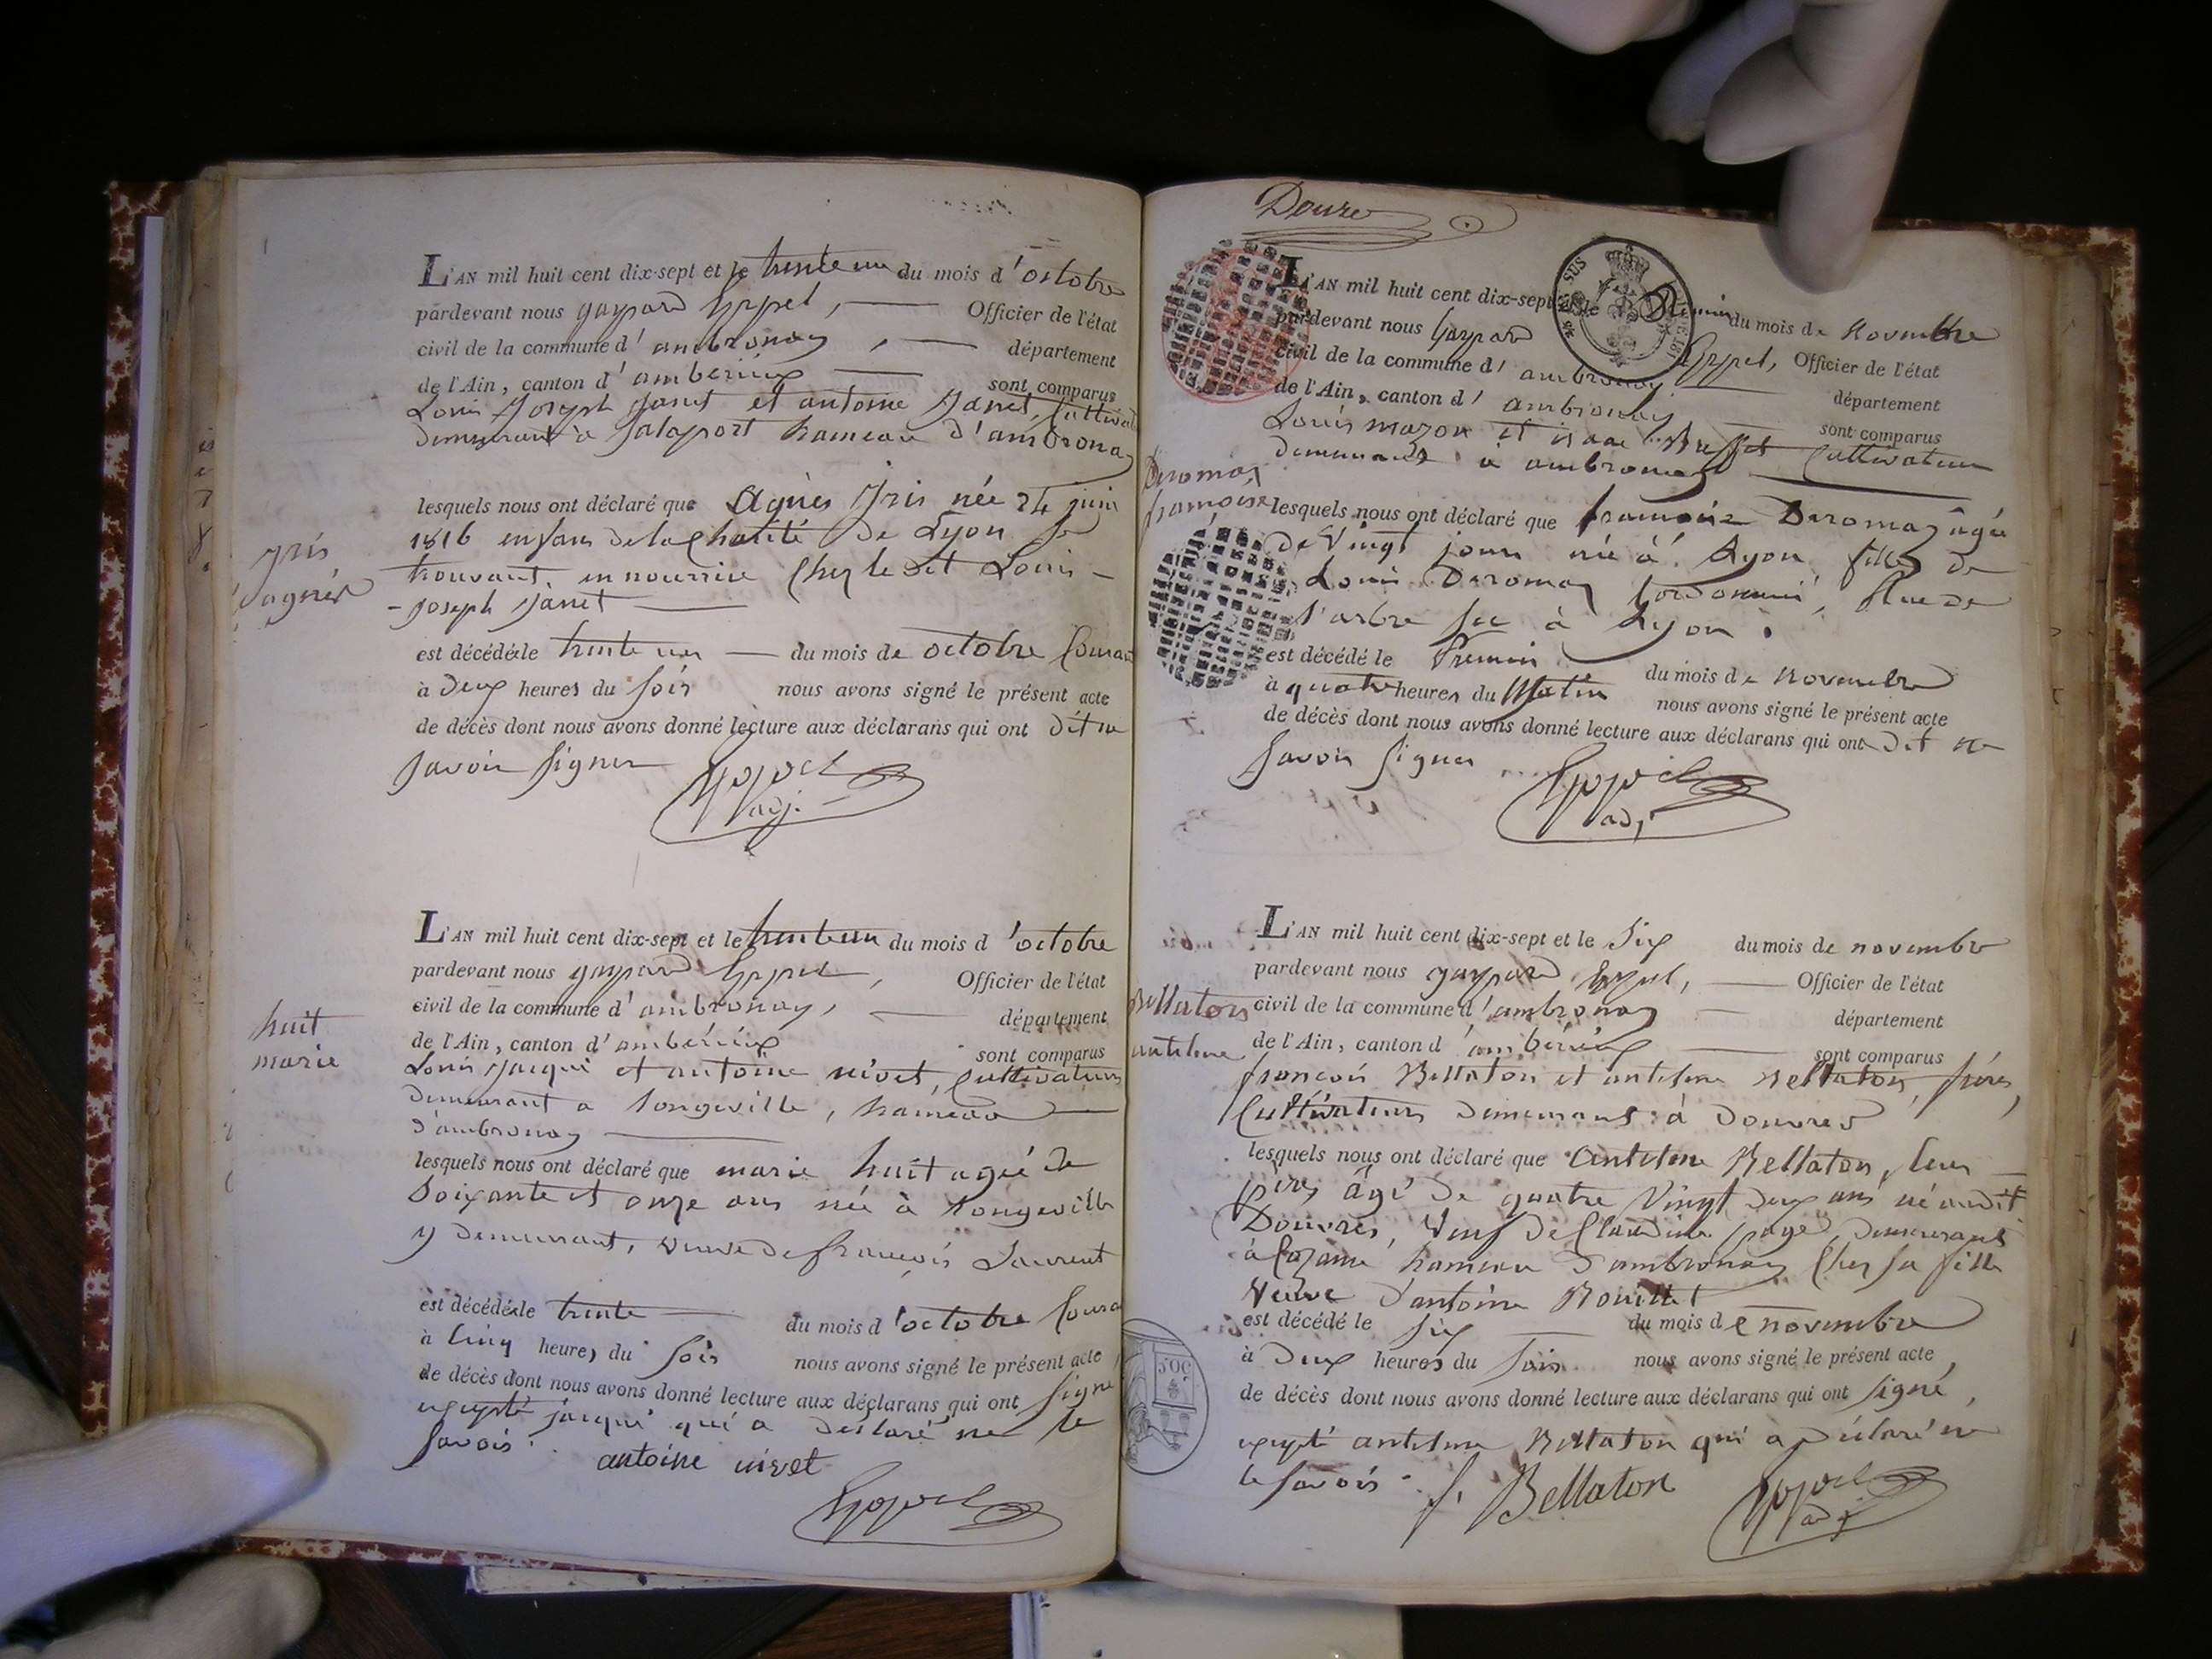 L'AN mil huit cent dix-sept et le trente un du mois d'octobre
pardevant nous gaspard Eppel, Officier de l'état
civil de la commune d'ambronay, département
de l'Ain, canton d'ambérieux sont comparus
Louis Joseph Janet et antoine Janet, Cultivat
demeurant à Salaport hameau d'ambronay
gris
agnès
lesquels nous ont déclaré que Agnès Gris née 24 juin
1816 enfant de la Charité de Lyon se
trouvant en nourrice chez le dit Louis
-Joseph Janet
est décédée le trente un du mois de octobre Couran
à deux heures du soir nous avons signé le présent acte
de décès dont nous avons donné lecture aux déclarans qui ont dit ne
savoir signer
Eppel
adj.
L'AN mil huit cent dix-sept et le trente un du mois d'octobre
pardevant nous gaspard Eppel, Officier de l'état
civil de la commune d'ambronay, département
de l'Ain, canton d'ambérieux sont comparus
Louis Jacqui et antoine nivet, Cultivateurs
demeurant a longeville, hameau
d'ambronay
huit
marie
lesquels nous ont déclaré que marie huit agée de
soixante et onze ans née à longeville
y demeurant, veuve de françois Laurent
est décédée le trente du mois d'octobre Coura
à Cinq heures du soir nous avons signé le présent acte
de décès dont nous avons donné lecture aux déclarans qui ont signé
excepté jacqui qui a déclaré ne le
savoir.
antoine nivet
Eppel
Douze
L'AN mil huit cent dix-sept et le Premier du mois de Novembre
pardevant nous Gaspard Eppel, Officier de l'état
civil de la commune d'ambronay département
de l'Ain, canton d'ambronay sont comparus
Louis mazon et isaac Cultivateurs
demeurant à ambronay
Deromas
françoise
lesquels nous ont déclaré que françoise Deromas âgée
de Vingt jours née à Lyon fille de
Louis Deromas Cordonnier, Rue de
l'arbre sec à Lyon.
est décédé le Premier du mois de novembre
à quatre heures du Matin nous avons signé le présent acte
de décès dont nous avons donné lecture aux déclarans qui ont dit ne
savoir signer
Eppel
adj
L'AN mil huit cent dix-sept et le Six du mois de novembre
pardevant nous gaspard Eppel, Officier de l'état
civil de la commune d'ambronay département
de l'Ain, canton d'ambérieux sont comparus
françois Bellaton et antelme Bellaton, frères,
Cultivateurs demeurans à Douvres
Bellaton
antelme
lesquels nous ont déclaré que Antelme Bellaton, leur
père, âgé de quatre Vingt deux ans né audit
Douvres, Veuf de Claudine page, demeurant
à hameau d'ambronay Chez sa fille
Veuve d'antoine Rouillet
est décédé le Six du mois de novembre
à Deux heures du soir nous avons signé le présent acte
de décès dont nous avons donné lecture aux déclarans qui ont signé,
excepté antelme Bellaton qui a déclaré ne
le savoir.
f. Bellaton
Eppel
adj
50C